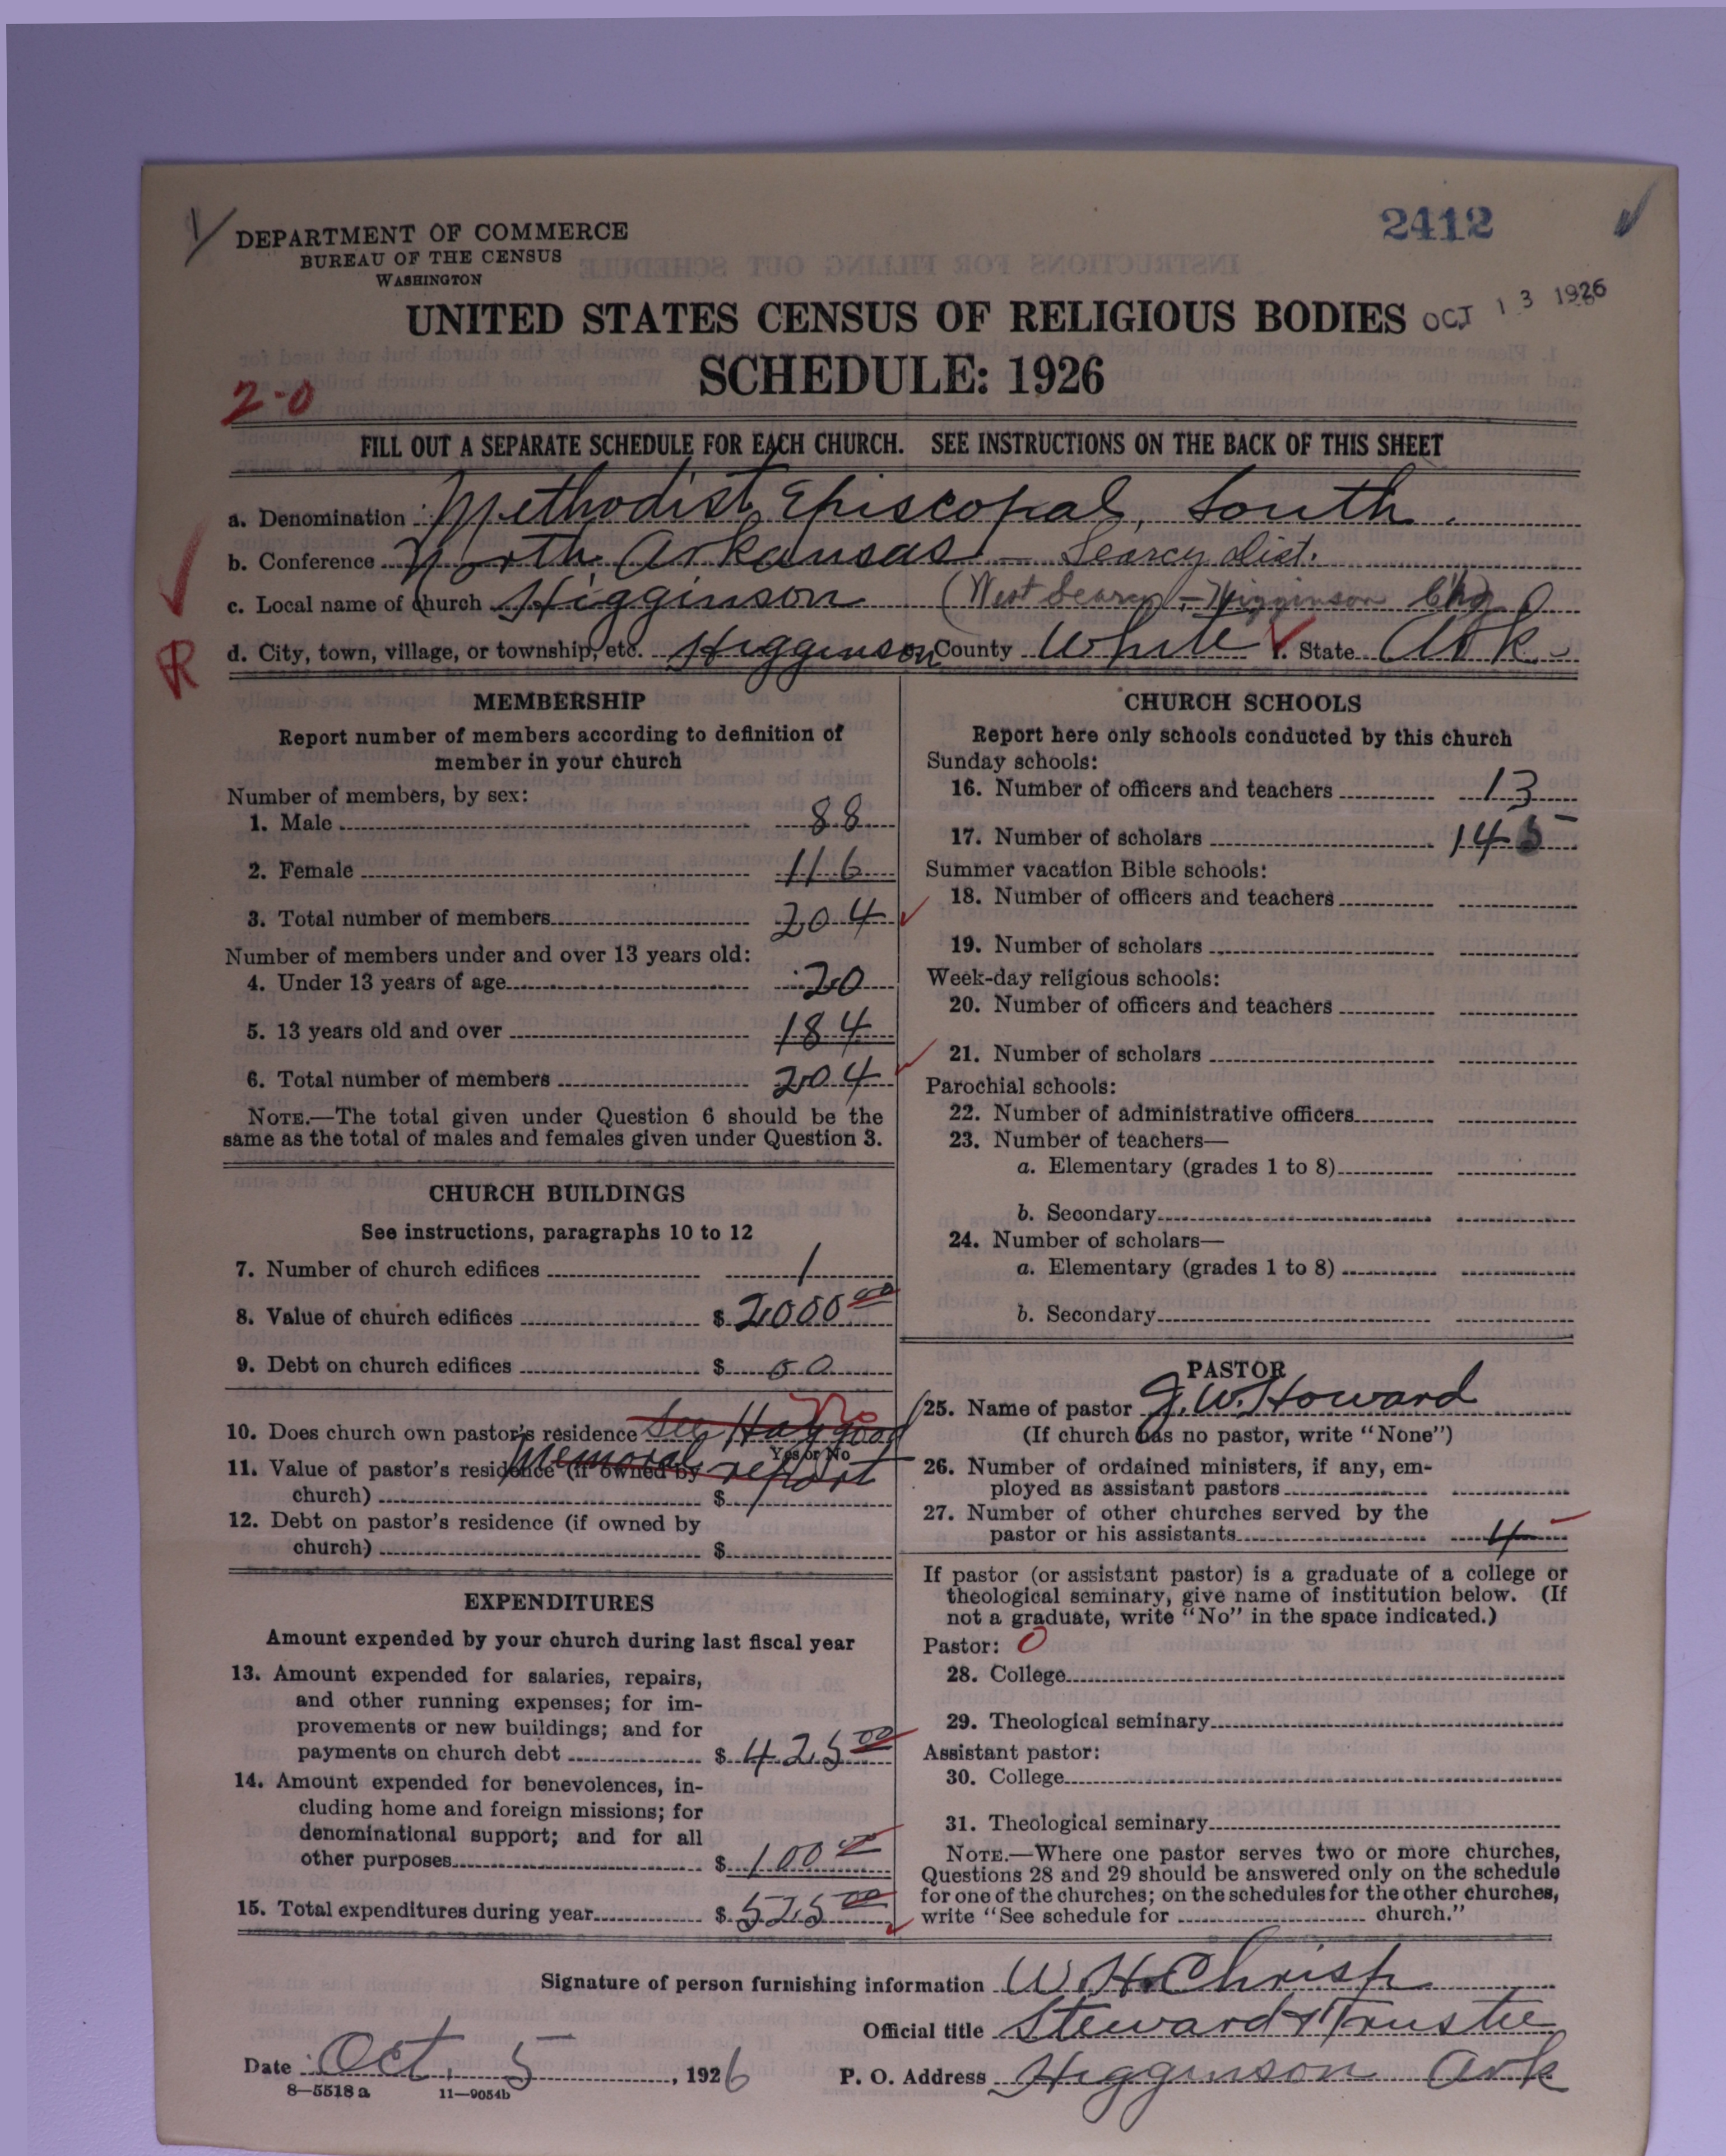 2412
DEPARTMENT OF COMMERCE
BUREAU OF THE CENSUS
WASHINGTON
UNITED STATES CENSUS OF RELIGIOUS BODIES
OCT 13 1926
SCHEDULE: 1926
2-0
FILL OUT A SEPARATE SCHEDULE FOR EACH CHURCH. SEE INSTRUCTIONS ON THE BACK OF THIS SHEET
a. Denomination Methodist Episcopal, South.
b. Conference North Arkansas - Searcy Dist.
c. Local name of church Higginson (West Searcy - Higginson Chg)
R
d. City, town, village, or township, etc. Higginson County White State Ark.
MEMBERSHIP
Report number of members according to definition of
member in your church
Number of members, by sex:
1. Male 88
2. Female 116
3. Total number of members 204
Number of members under and over 13 years old:
4. Under 13 years of age 20
5. 13 years old and over 184
6. Total number of members 204
NOTE.—The total given under Question 6 should be the
same as the total of males and females given under Question 3.
CHURCH BUILDINGS
See instructions, paragraphs 10 to 12
7. Number of church edifices 1
8. Value of church edifices $ 2000 00
9. Debt on church edifices $ 00
10. Does church own pastor's residence See Haggood No
Yes or No
Memorial report
11. Value of pastor's residence (if owned by
church) $
12. Debt on pastor's residence (if owned by
church) $
EXPENDITURES
Amount expended by your church during last fiscal year
13. Amount expended for salaries, repairs,
and other running expenses; for im-
provements or new buildings; and for
payments on church debt $ 425 00
14. Amount expended for benevolences, in-
cluding home and foreign missions; for
denominational support; and for all
other purposes $ 100 00
15. Total expenditures during year $ 525 00
CHURCH SCHOOLS
Report here only schools conducted by this church
Sunday schools:
16. Number of officers and teachers 13
17. Number of scholars 145
Summer vacation Bible schools:
18. Number of officers and teachers
19. Number of scholars
Week-day religious schools:
20. Number of officers and teachers
21. Number of scholars
Parochial schools:
22. Number of administrative officers
23. Number of teachers—
a. Elementary (grades 1 to 8)
b. Secondary
24. Number of scholars—
a. Elementary (grades 1 to 8)
b. Secondary
PASTOR
25. Name of pastor J. W. Howard
(If church has no pastor, write "None")
26. Number of ordained ministers, if any, em-
ployed as assistant pastors
27. Number of other churches served by the
pastor or his assistants 4
If pastor (or assistant pastor) is a graduate of a college or
theological seminary, give name of institution below. (If
not a graduate, write "No" in the space indicated.)
Pastor: 0
28. College
29. Theological seminary
Assistant pastor:
30. College
31. Theological seminary
NOTE.—Where one pastor serves two or more churches,
Questions 28 and 29 should be answered only on the schedule
for one of the churches; on the schedules for the other churches,
write "See schedule for church."
Signature of person furnishing information W. H. Chrisp
Official title Steward & Trustee
Date Oct. 5, 1926 P. O. Address Higginson Ark
8—5518 a 11—9054b